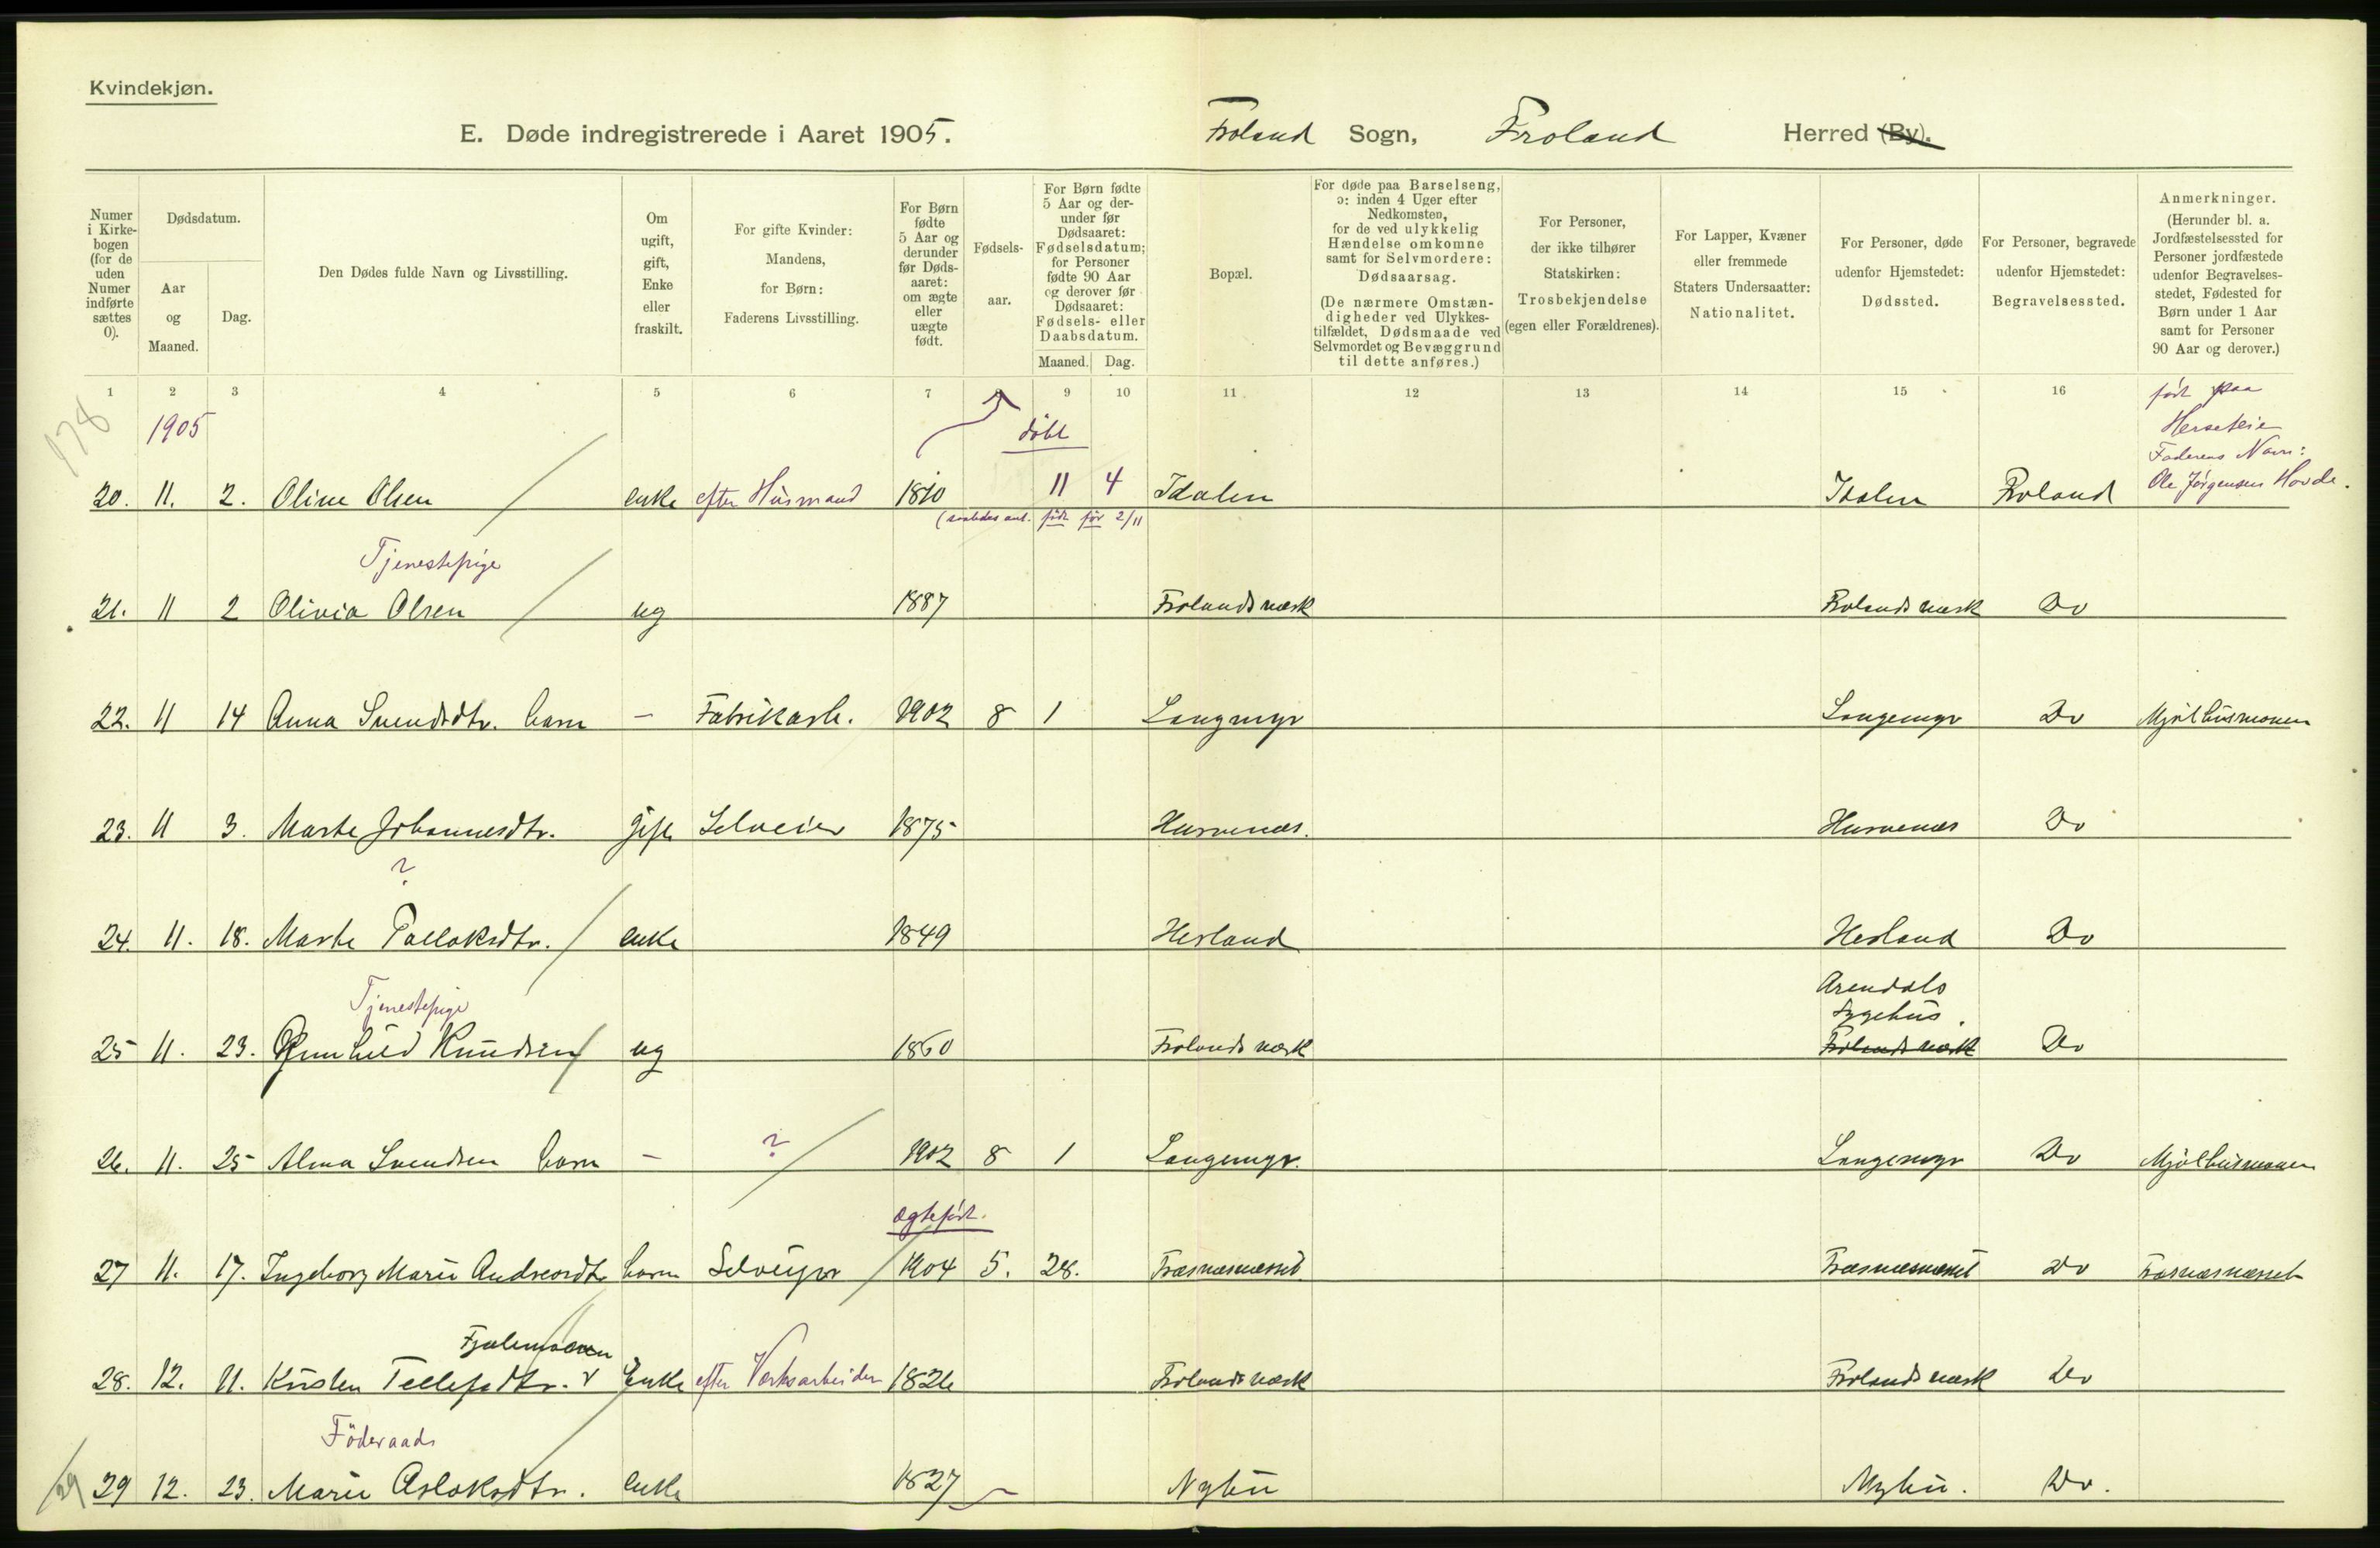 Kvindekjøn.
E. Døde indregistrerede i Aaret 1905.
Froland Sogn, Froland Herred (By).
Numer i Kirkebogen (for de uden Numer indførte sættes 0).
Dødsdatum.
Aar og Maaned.
Dag.
Den Dødes fulde Navn og Livsstilling.
Om ugift, gift, Enke eller fraskilt.
For gifte Kvinder: Mandens, for Børn: Faderens Livsstilling.
For Børn fødte 5 Aar og derunder før Dødsaaret: om ægte eller uægte født.
Fødselsaar.
For Børn fødte 5 Aar og derunder før Dødsaaret: Fødselsdatum; for Personer fødte 90 Aar og derover før Dødsaaret: Fødsels- eller Daabsdatum.
Maaned. Dag.
Bopæl.
For døde paa Barselseng, ɔ: inden 4 Uger efter Nedkomsten, for de ved ulykkelig Hændelse omkomne samt for Selvmordere: Dødsaarsag.
(De nærmere Omstændigheder ved Ulykkestilfældet, Dødsmaade ved Selvmordet og Bevæggrund til dette anføres.)
For Personer, der ikke tilhører Statskirken: Trosbekjendelse (egen eller Forældrenes).
For Lapper, Kvæner eller fremmede Staters Undersaatter: Nationalitet.
For Personer, døde udenfor Hjemstedet: Dødssted.
For Personer, begravede udenfor Hjemstedet: Begravelsessted.
Anmerkninger.
(Herunder bl. a. Jordfæstelsessted for Personer jordfæstede udenfor Begravelsesstedet, Fødested for Børn under 1 Aar samt for Personer 90 Aar og derover.)
1 2 3 4 5 6 7 8 9 10 11 12 13 14 15 16
178
1905
døbt
født paa
Herseteie
Faderens Navn:
Ole Jørgensen Hovde.
20. 11. 2. Oline Olsen enke efter Husmand 1810 11 4 Idalen Idalen Froland
født før 2/11
Tjenestepige
21. 11 2 Olivia Olsen ug 1887 Frolands værk Frolands værk Do
22. 11 14 Anna Svendsdtr. barn - Fabrikarb. 1902 8 1 Langemyr Langemyr Do Mjølhusmonen
23. 11 3. Marte Johannesdtr. gift Selveier 1875 Husvenæs. Husvenæs Do
?
24. 11. 18. Marte Tallaksdtr. enke 1849 Hesland Hesland Do
Tjenestepige
Arendals
Sygehus.
25 11. 23. Gunhild Knudsen ug 1860 Frolands værk Frolands værk Do
26. 11. 25 Alma Svendsen barn - ? 1902 8 1 Langemyr. Langemyr Do Mjølhusmonen
ægtefødt.
27 11. 17. Ingeborg Marie Andreasdtr barn Selveier 1904 5. 28. Træsnæsnesset Træsnæsnesset Do Træsnæsnesset
28. 12. 11. Kirsten Tellefsdtr. Enke efter Værksarbeider 1826 Frolands værk Frolands værk Do
Føderaads
29 12. 23. Marie Aslaksdtr. enke 1827 Nybu Nybu. Do.